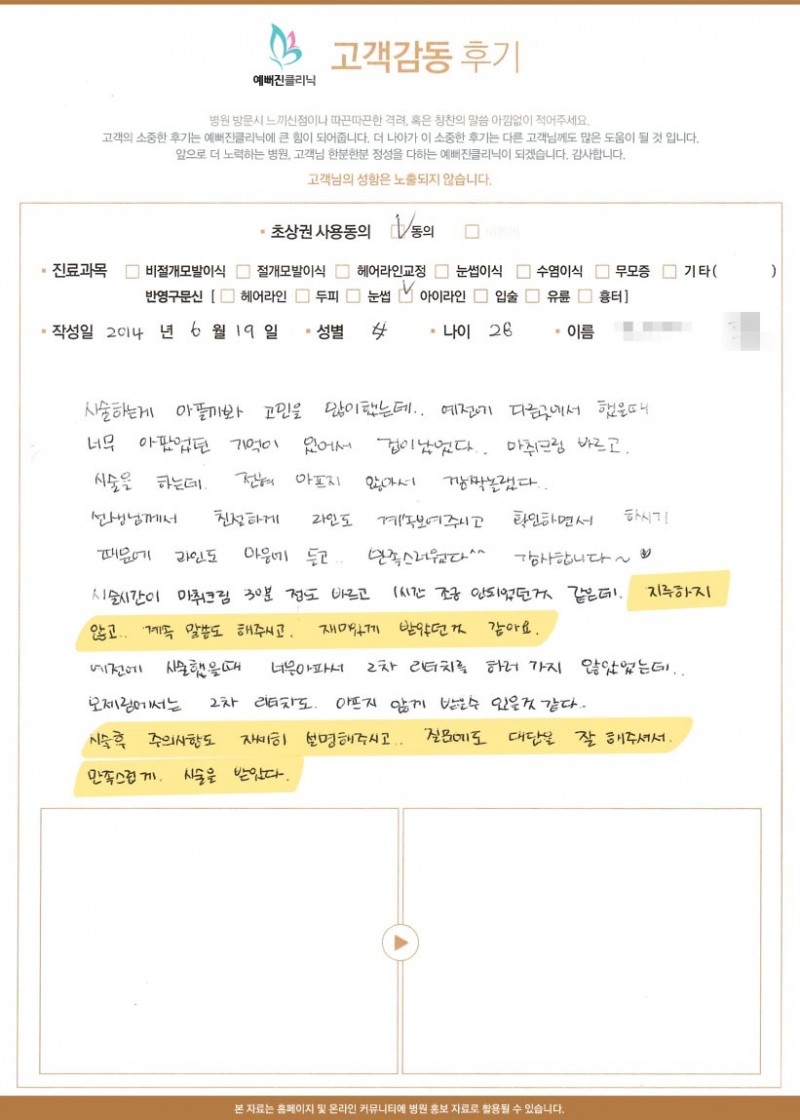 예뻐진클리닉
고객감동 후기
병원 방문시 느끼신점이나 따끈따끈한 격려, 혹은 칭찬의 말씀 아낌없이 적어주세요.
고객의 소중한 후기는 예뻐진클리닉에 큰 힘이 되어줍니다. 더 나아가 이 소중한 후기는 다른 고객님께도 많은 도움이 될 것 입니다.
앞으로 더 노력하는 병원, 고객님 한분한분 정성을 다하는 예뻐진클리닉이 되겠습니다. 감사합니다.
고객님의 성함은 노출되지 않습니다.
초상권 사용동의 동의
진료과목 비절개모발이식 절개모발이식 헤어라인교정 눈썹이식 수염이식 무모증 기타( )
반영구문신 [ 헤어라인 두피 눈썹 아이라인 입술 유륜 흉터 ]
작성일 2014 년 6 월 19 일 성별 나이 28 이름
시술하는게 아플까봐 고민을 많이했는데.. 예전에 다른곳에서 했을때
너무 아팠었던 기억이 있어서 겁이났었다.. 마취크림 바르고.
시술을 하는데. 전혀 아프지 않아서 깜짝놀랬다..
선생님께서 친절하게 라인도 계속보여주시고 확인하면서 하시기
때문에 라인도 마음에 들고.. 만족스러웠다^^ 감사합니다~ ♥
시술시간이 마취크림 30분 정도 바르고 1시간 조금 안되었던것 같은데. 지루하지
않고.. 계속 말씀도 해주시고. 재미있게 받았던것 같아요.
예전에 시술했을때 너무아파서 2차 리터치를 하러 가지 않았었는데..
모제림에서는 2차 리터치도. 아프지 않게 받을수 있을것 같다.
시술후 주의사항도 자세히 설명해주시고.. 질문에도 대답을 잘 해주셔서.
만족스럽게. 시술을 받았다.
본 자료는 홈페이지 및 온라인 커뮤니티에 병원 홍보 자료로 활용될 수 있습니다.